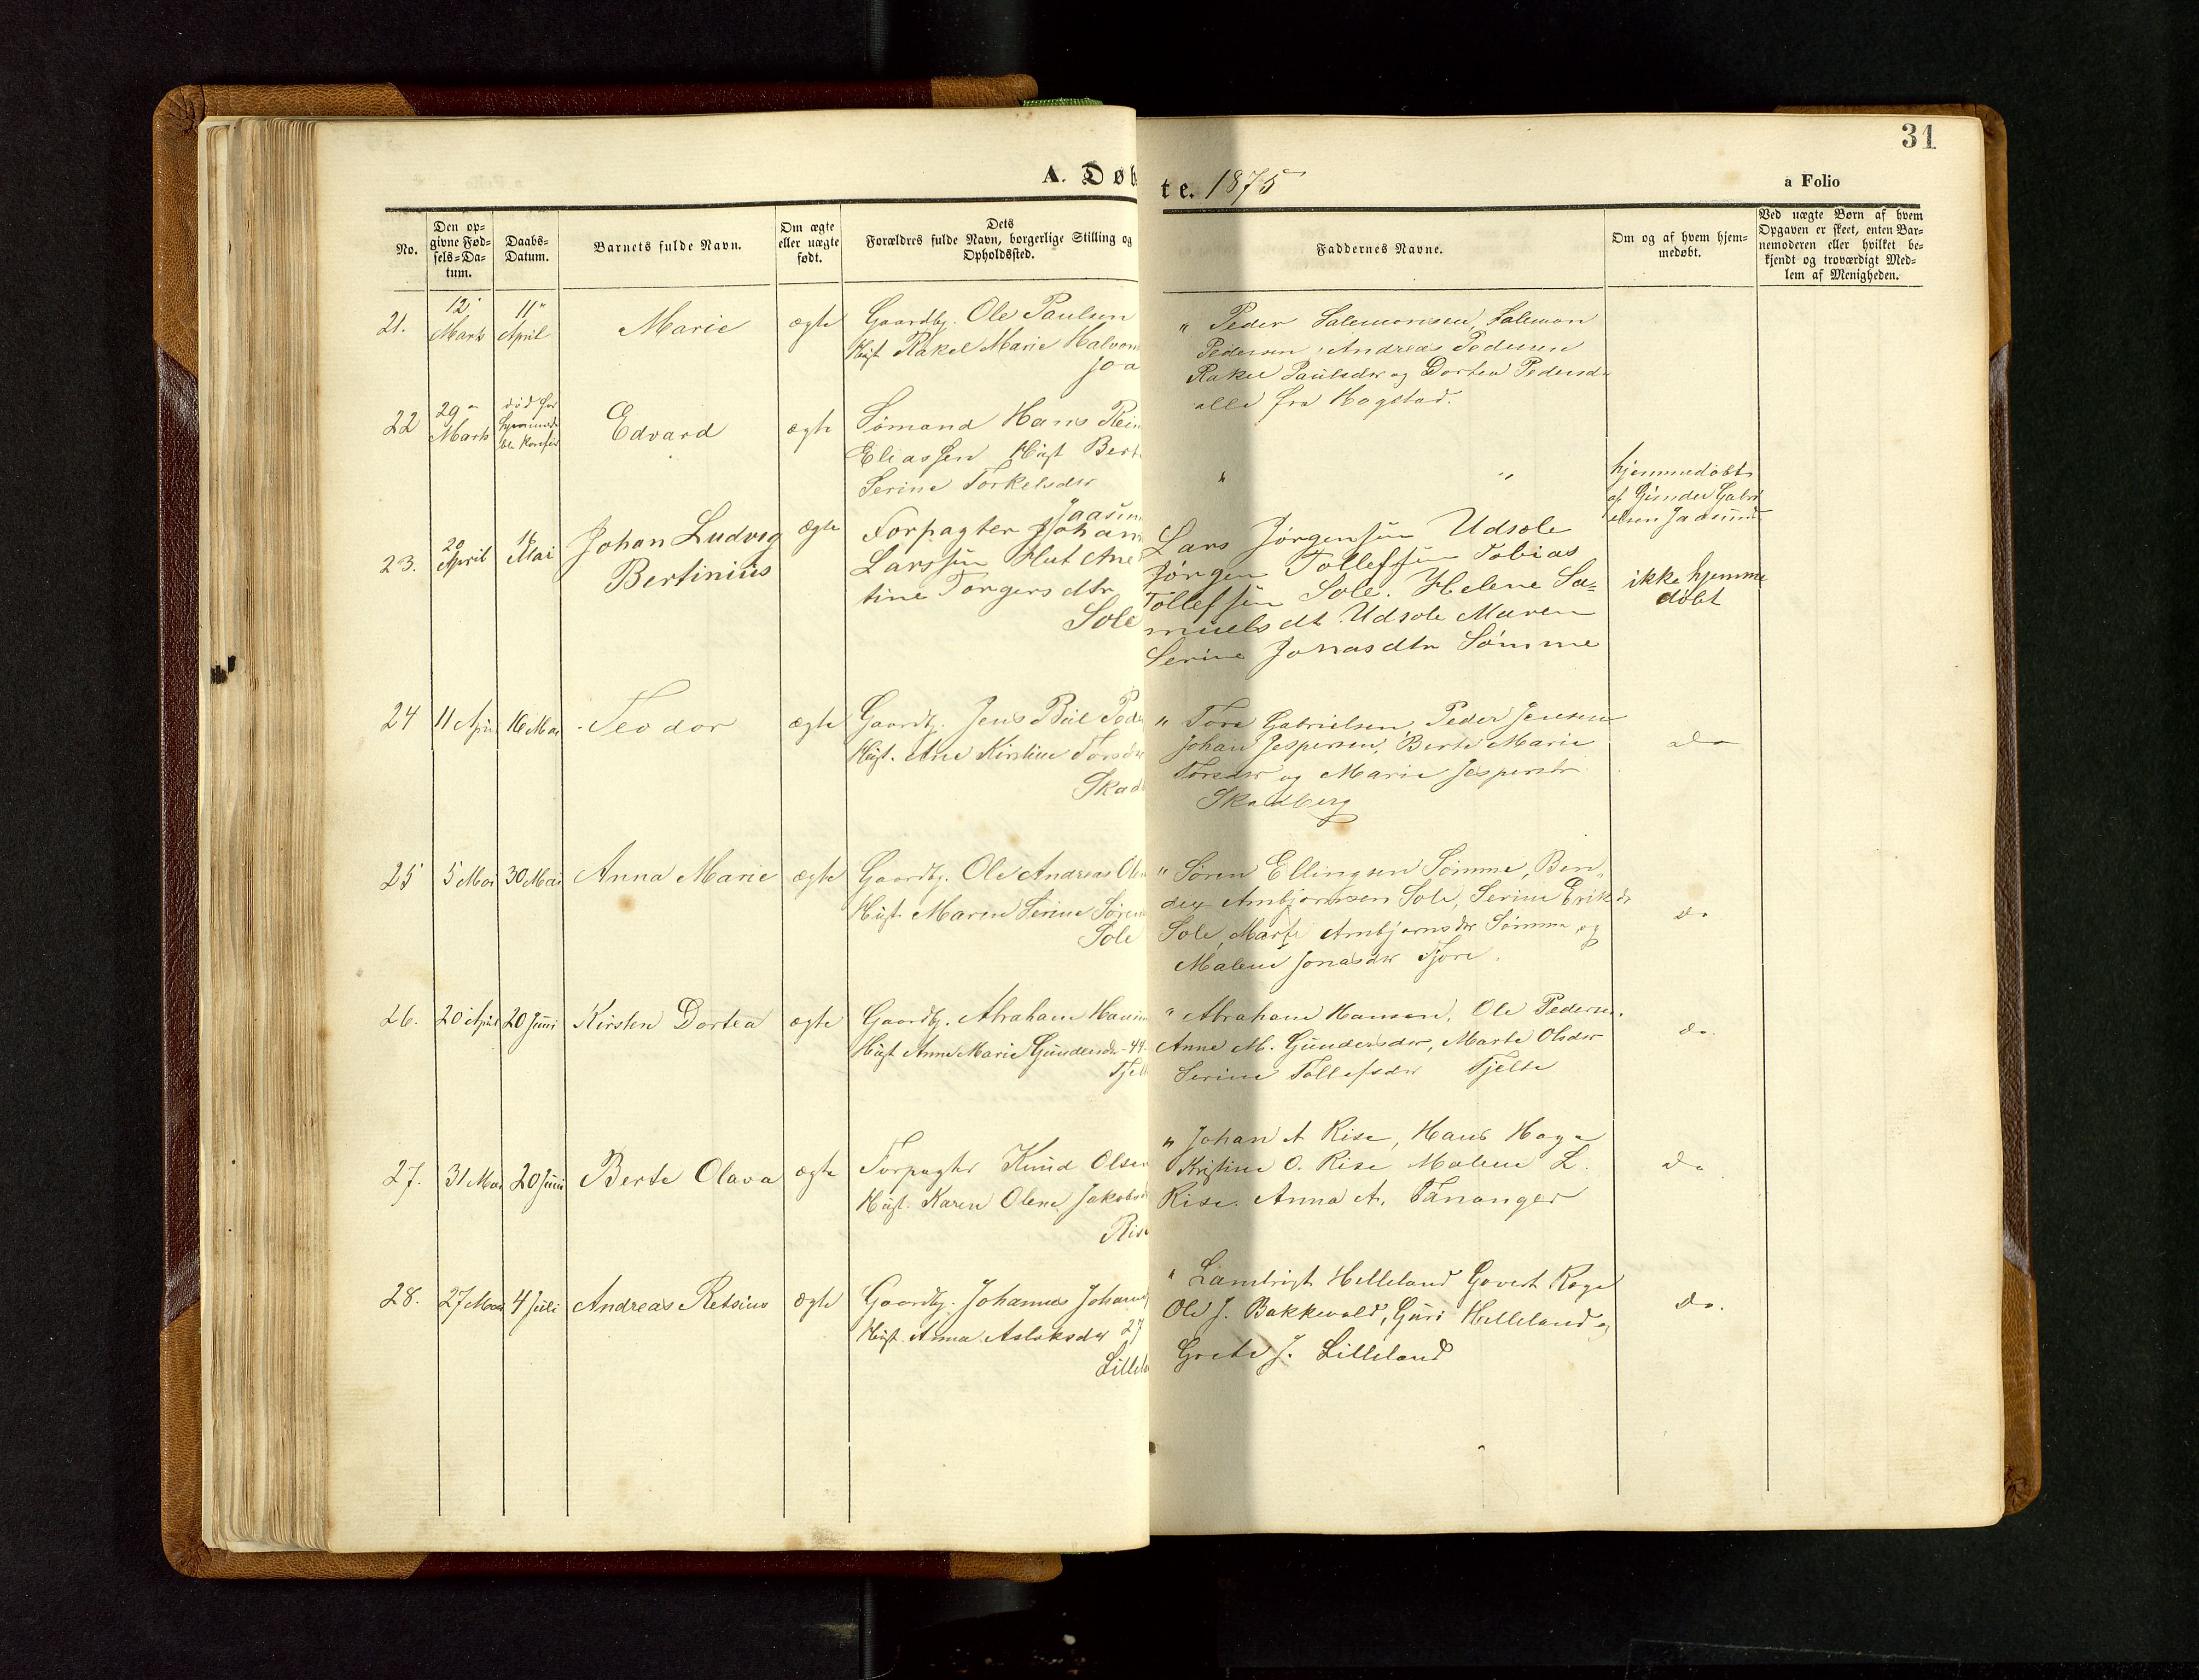 31
A. Døb
te. 1875
a Folio
No.
Den op-
givne Fød-
sels-Da-
tum.
Daabs-
Datum.
Barnets fulde Navn.
Om ægte
eller uægte
født.
Dets
Forældres fulde Navn, borgerlige Stilling og
Opholdssted.
Faddernes Navne.
Om og af hvem hjem-
medøbt.
Ved uægte Børn af hvem
Opgaven er skeet, enten Bar-
nemoderen eller hvilket be-
kjendt og troværdigt Med-
lem af Menigheden.
21.
12
Marts
11
April
Marie
ægte
Gaardbg. Ole Paulsen
Hust Rakel Marie Halvors
Joa
" Peder Salemonsen, Salemon
Pedersen, Andreas Pedersen
Rakel Paulsdtr og Dortea Pedersd
alle fra Hogstad.
22
29
Marts
død før
Edvard
ægte
Sømand Hans Rein
Eliassen Hust Bert
Serine Torkelsdtr
Jaasun
" "
hjemmedøbt
af Gunder Gabri
elsen Jaasund
23.
20
April
16
Mai
Johan Ludvig
Bertinius
ægte
Forpagter Johan
Larssen Hut Ane
tine Torgersdtr
Sole
Lars Jørgensen Udsole
Jørgen Tollefsen Tobias
Tollefsen Sole. Helene Sa-
muelsdt Udsole Maren
Serine Jonasdtr Sømme
ikke hjemme
døbt
24
11 April
16 Mai
Teodor
ægte
Gaardbg. Jens Bul Pede
Hust. Ane Kirstine Torsdtr
Skad
" Tore Gabrielsen, Peder Jensen
Johan Jespersen, Berte Marie
Toresdtr og Marie Jespersdtr
Skadberg
do
25
5 Mai
30 Mai
Anna Marie
ægte
Gaardbg. Ole Andreas Ols
Hust Maren Serine Søren
Sole
" Søren Ellingsen Sømme, Ben-
dix Ambjørnsen Sole, Serine Eriksd
Sole, Marte Ambjørnsdtr Sømme og
Malene Jonasdtr Tjore.
do
26.
20 April
20 Juni
Kirsten Dortea
ægte
Gaardbg. Abraham Hansen
Hust Anne Marie Gundersdtr 44
Tjelt
" Abraham Hansen, Ole Pedersen.
Anne M. Gundersdtr, Marte Olsdtr
Serine Tollefsdtr Tjelte
do.
27.
31 Mai
20 Juni
Berte Olava
ægte
Forpagter Knud Olsen
Hust. Karen Olene Jakobsd
Rise
" Johan A Rise, Hans Haga
Kristine O. Rise Malene L.
Rise. Anna A. Tananger
do
28.
27 Mai
4 Juli
Andreas Retsius
ægte
Gaardbg. Johannes Johann
Hust. Anna Aslaksdtr 27
Lillela
" Lambrigt Helleland Govert Rege
Ole J. Bakkevold, Guri Helleland og
Grete J. Lilleland
do.